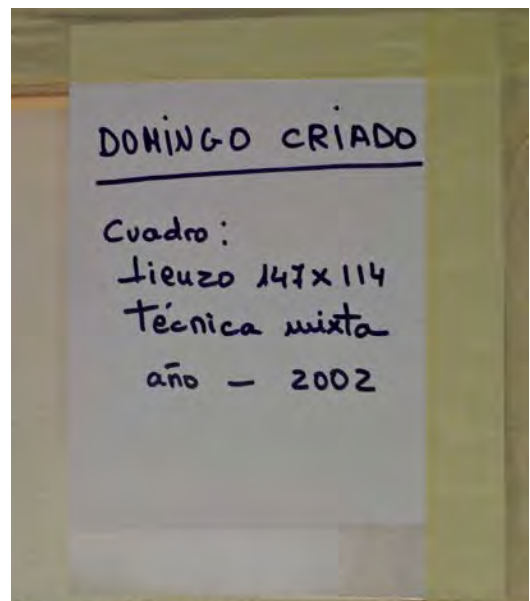 DOMINGO CRIADO
Cuadro:
Lienzo 147x114
Técnica mixta
año - 2002